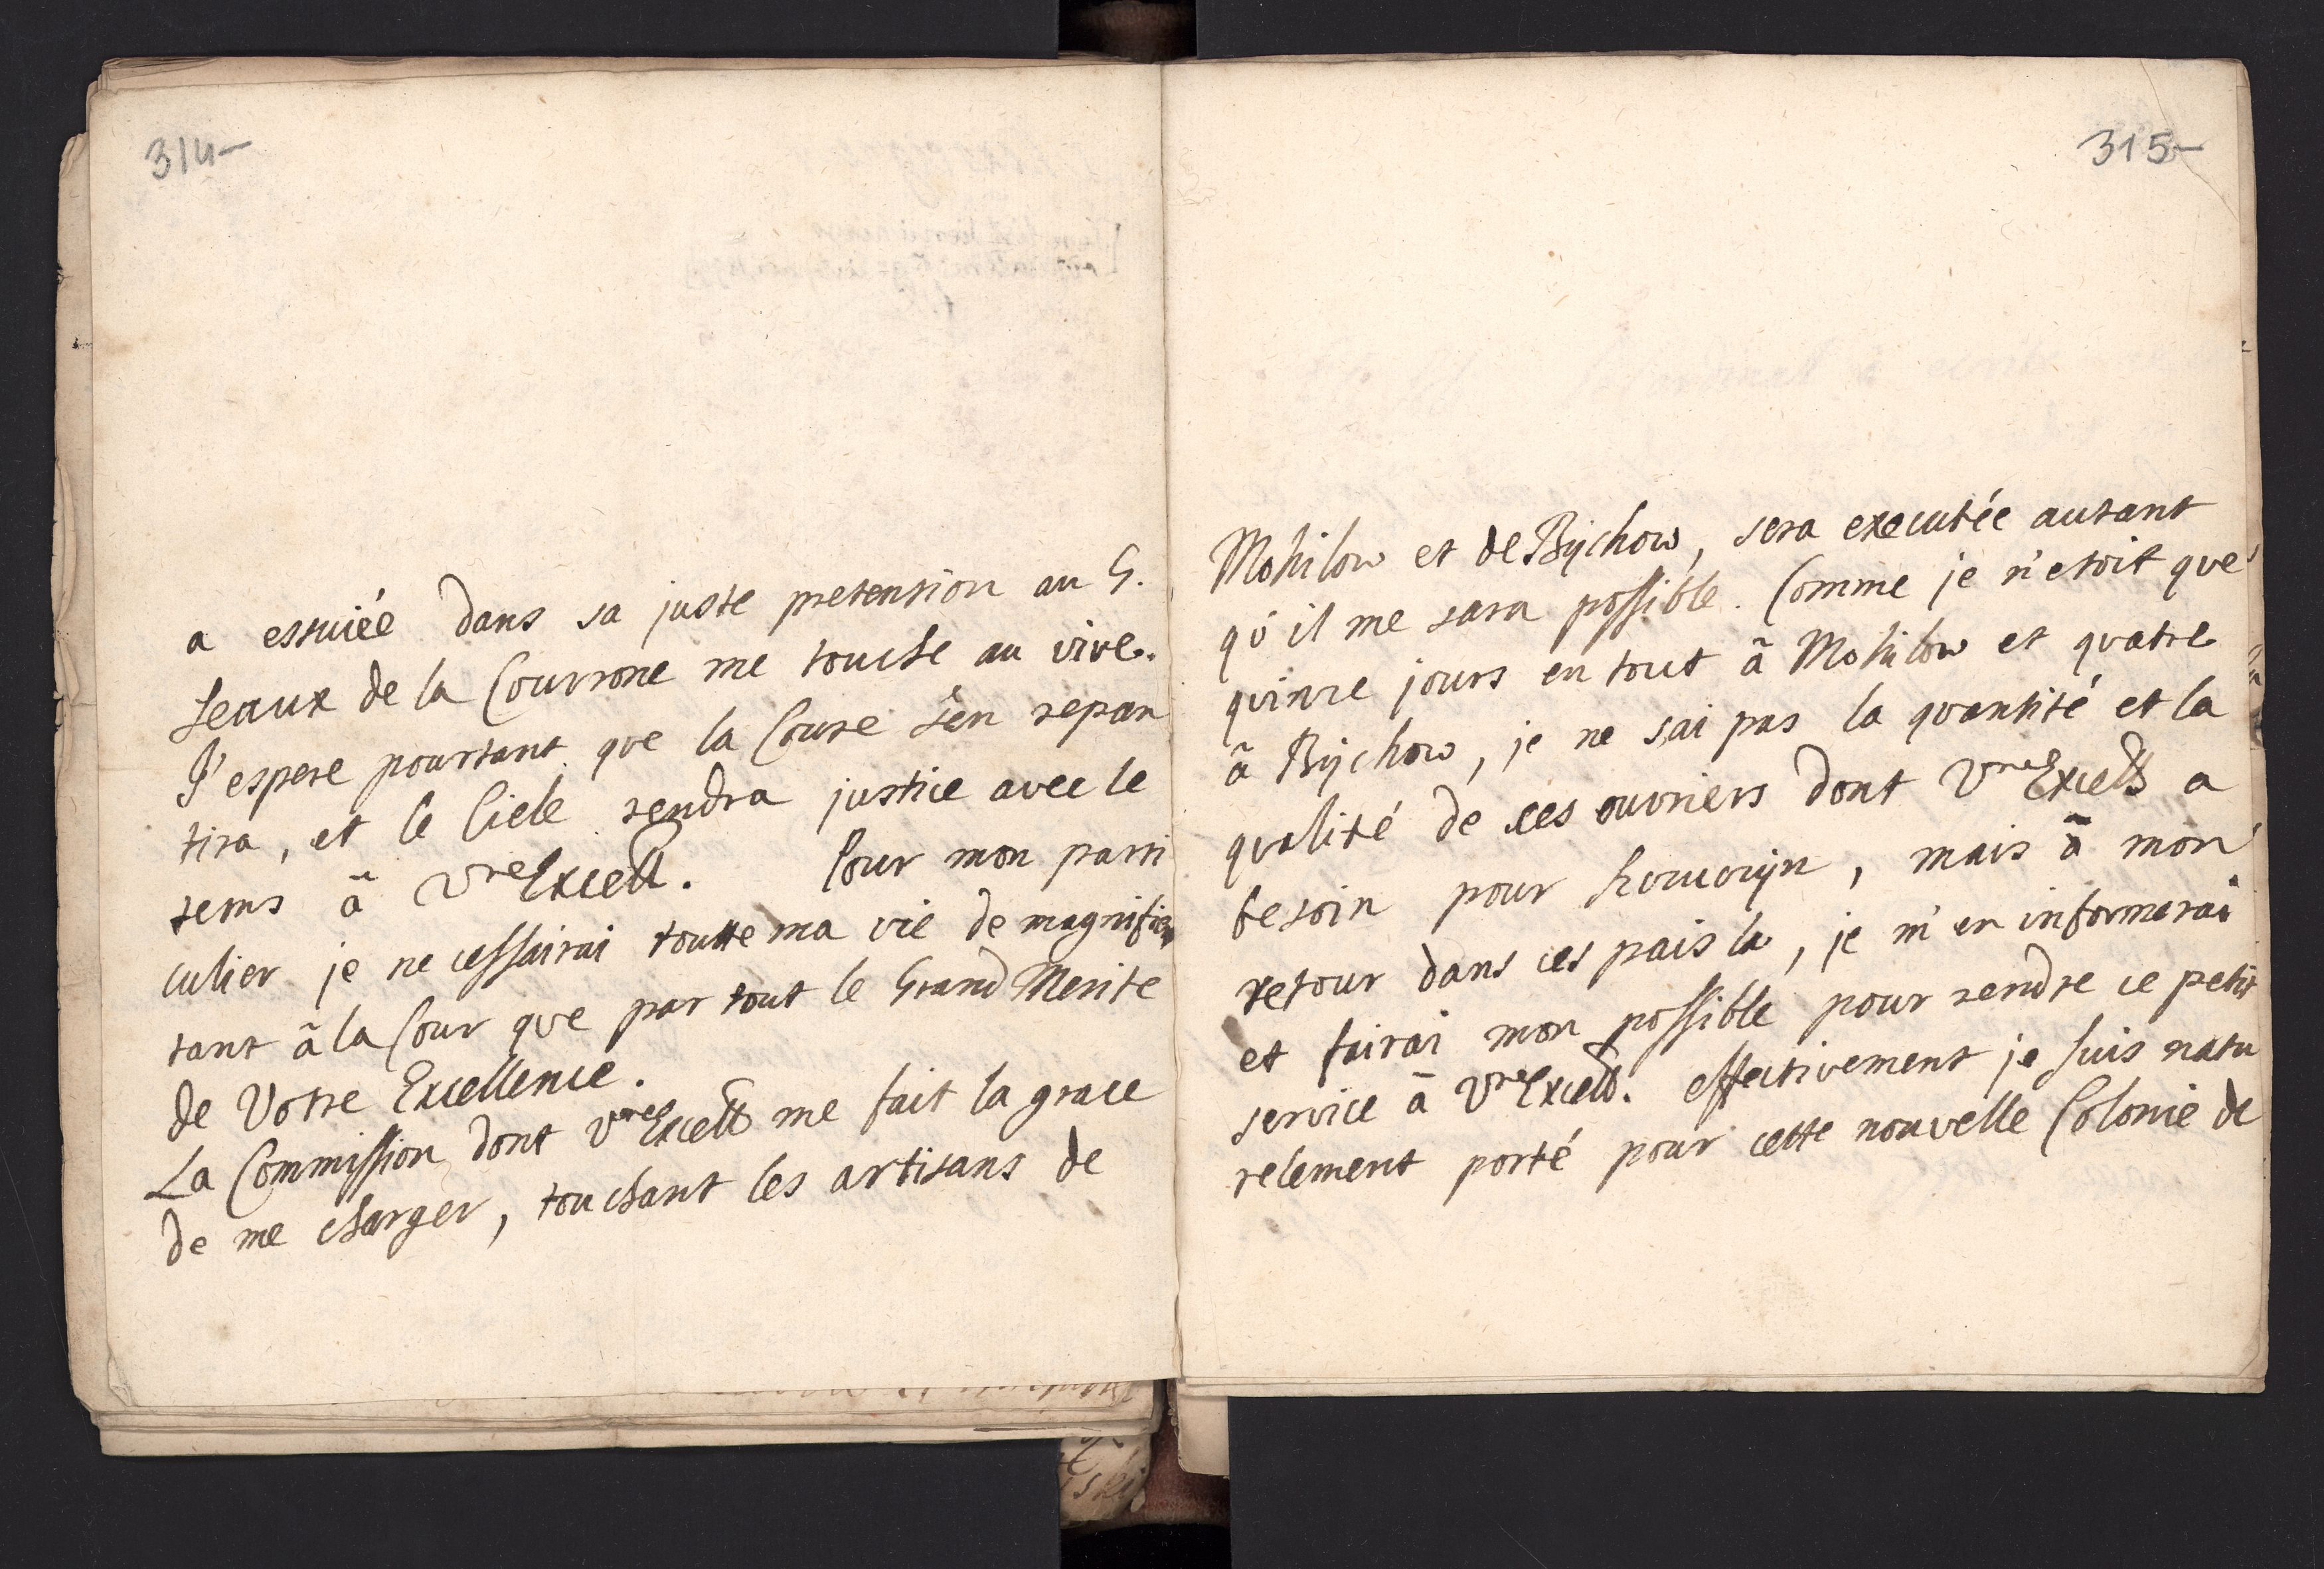 314-
a essuiée dans sa juste pretension au G.
seaux de la Courrone me touche au vive.
J'espere pourtant que la Coure s'en repan
tira, et le Ciele rendra justice avec le
tems â Vre Excell. Pour mon parti
culier je ne cessairai toutte ma vie de magnifier
tant â la Cour que par tout le Grand Merite
de Votre Excellence.
La Commission dont Vre Excell me fait la grace
de me charger, touchant les artisans de
315-
Mohilow et de Bychow, sera executée autant
qu'il me sara possible. Comme je n'etoit que
quinze jours en tout â Mohilow et quatre
â Bychow, je ne sai pas la quantité et la
qualité de ces ouvriers dont Vre Excell a
besoin pour , mais â mon
retour dans ces pais la, je m'en informerai
et fairai mon possible pour rendre ce petit
service â Vre Excell. effectivement je suis natu
relement porté pour cette nouvelle Colonie de